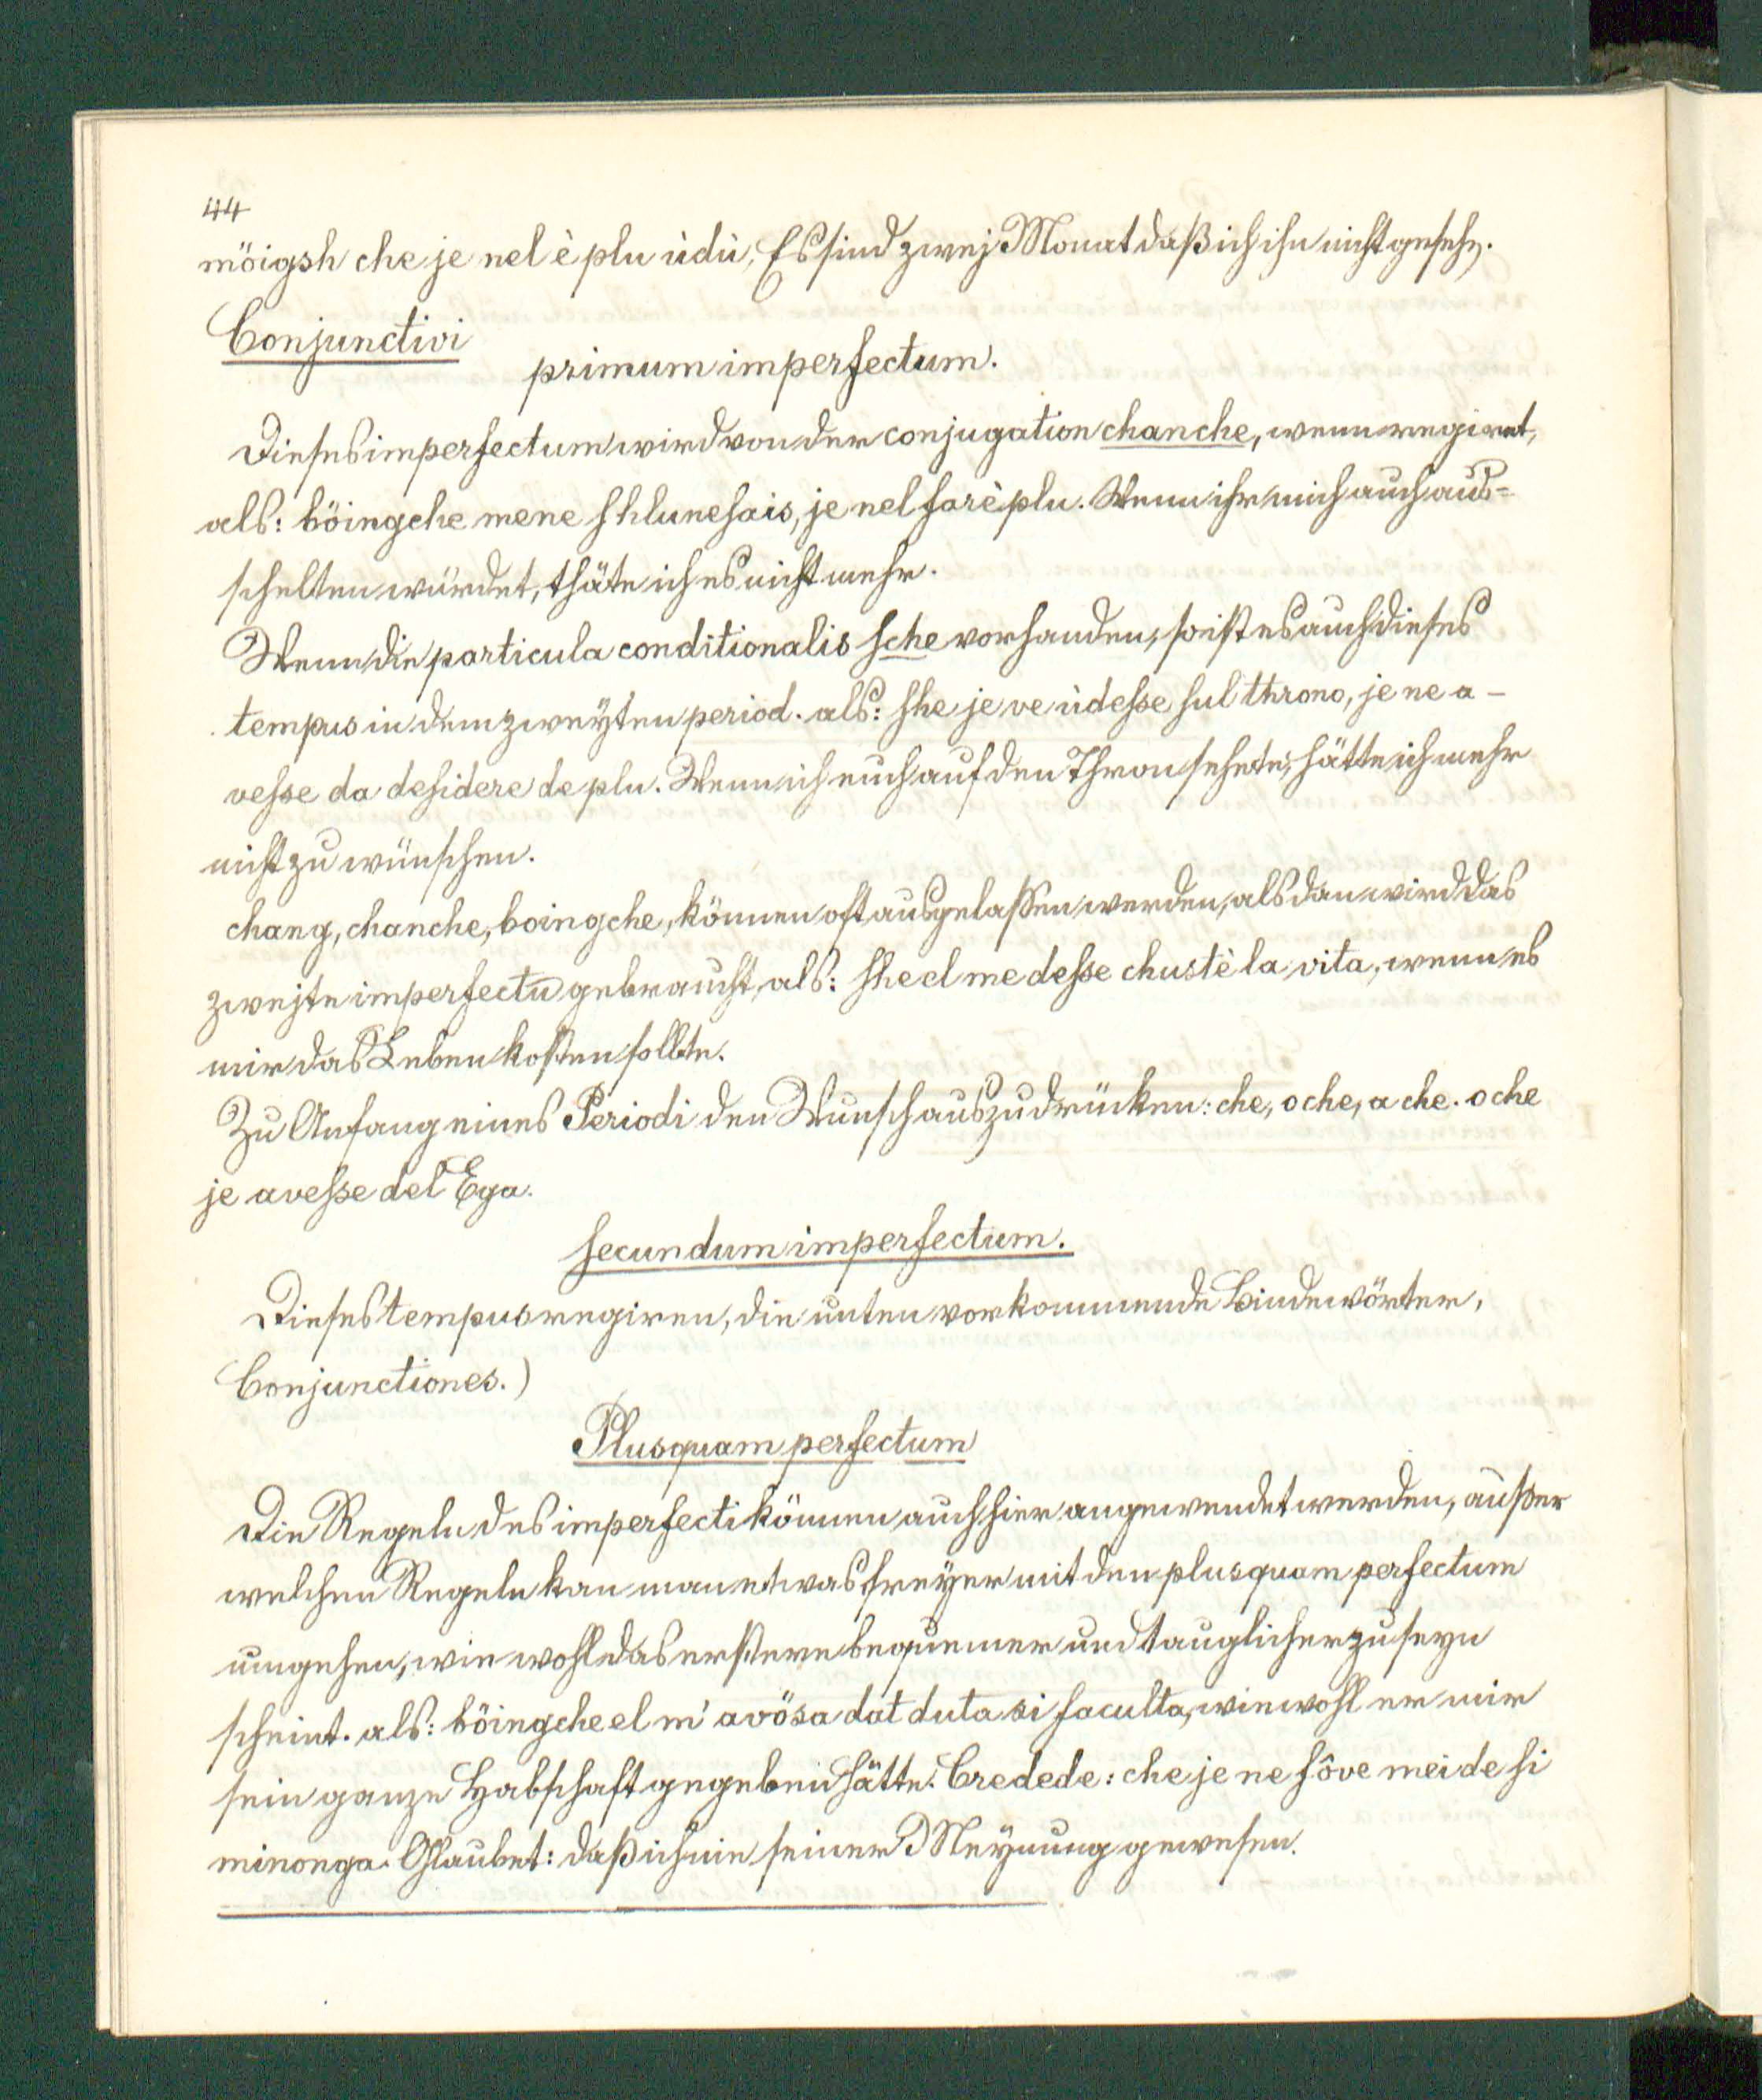 44
möigsh che je nel è plu ùdù, Es sind zwej Monat daß ich ihn nicht geseh.
Conjunctivi
primum imperfectum.
Dieses imperfectum wird von der conjugation chanche, wenn regiret,
als: böingche mene shlunesais, je nel farè plu. Wenn ihr mich auch aus=
schelten würdet, thäte ich es nicht mehr.
Wenn die particula conditionalis sche vorhanden, so ist es auch dieses
tempus in dem zweÿten period. als: she je ve ùdesse sul throno, je ne a-
vesse da desidere de plu. Wenn ich euch auf den Thron sehete, hätte ich mehr
nicht zu wünschen.
chang, chanche, boingche, können oft ausgelassen werden, alsdan wird das
zwejte imperfectū gebraucht, als: she el me desse chustè la vita, wenn es
mir das Leben kosten sollte.
Zu Anfang eines Periodi den Wunsch auszudrücken: che, o che, a che. o che
je avesse del Ega.
secundum imperfectum.
Dieses tempus regiren, die unten vorkommende Bindewörter,
Conjunctiones.)
Plusquam perfectum
Die Regeln des imperfecti können auch hier angewendet werden, außer
welchen Regeln kan man etwas freÿer mit den plusquam perfectum
umgehen, wie wohl das erstere bequemer und tauglicher zu seyn
scheint. als: böingche el m' avösa dat duta si faculta, wiewohl er mir
sein ganze Habschaft gegeben hätte. Credede: che je ne fôve mei de si
minonga. Glaubet: daß ich nie seiner Meÿnung gewesen.